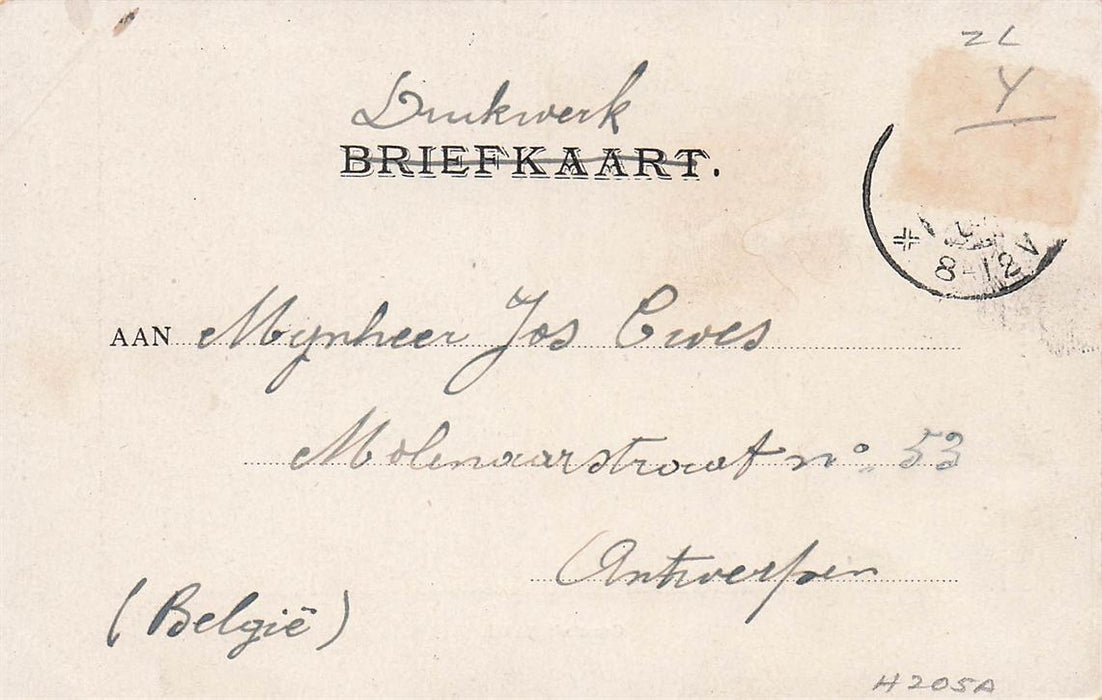 ZL
Y
Drukwerk
BRIEFKAART.
8-12 V
AAN Mynheer Jos
Molenaarstraat no. 53
Antwerpen
(België)
H205A